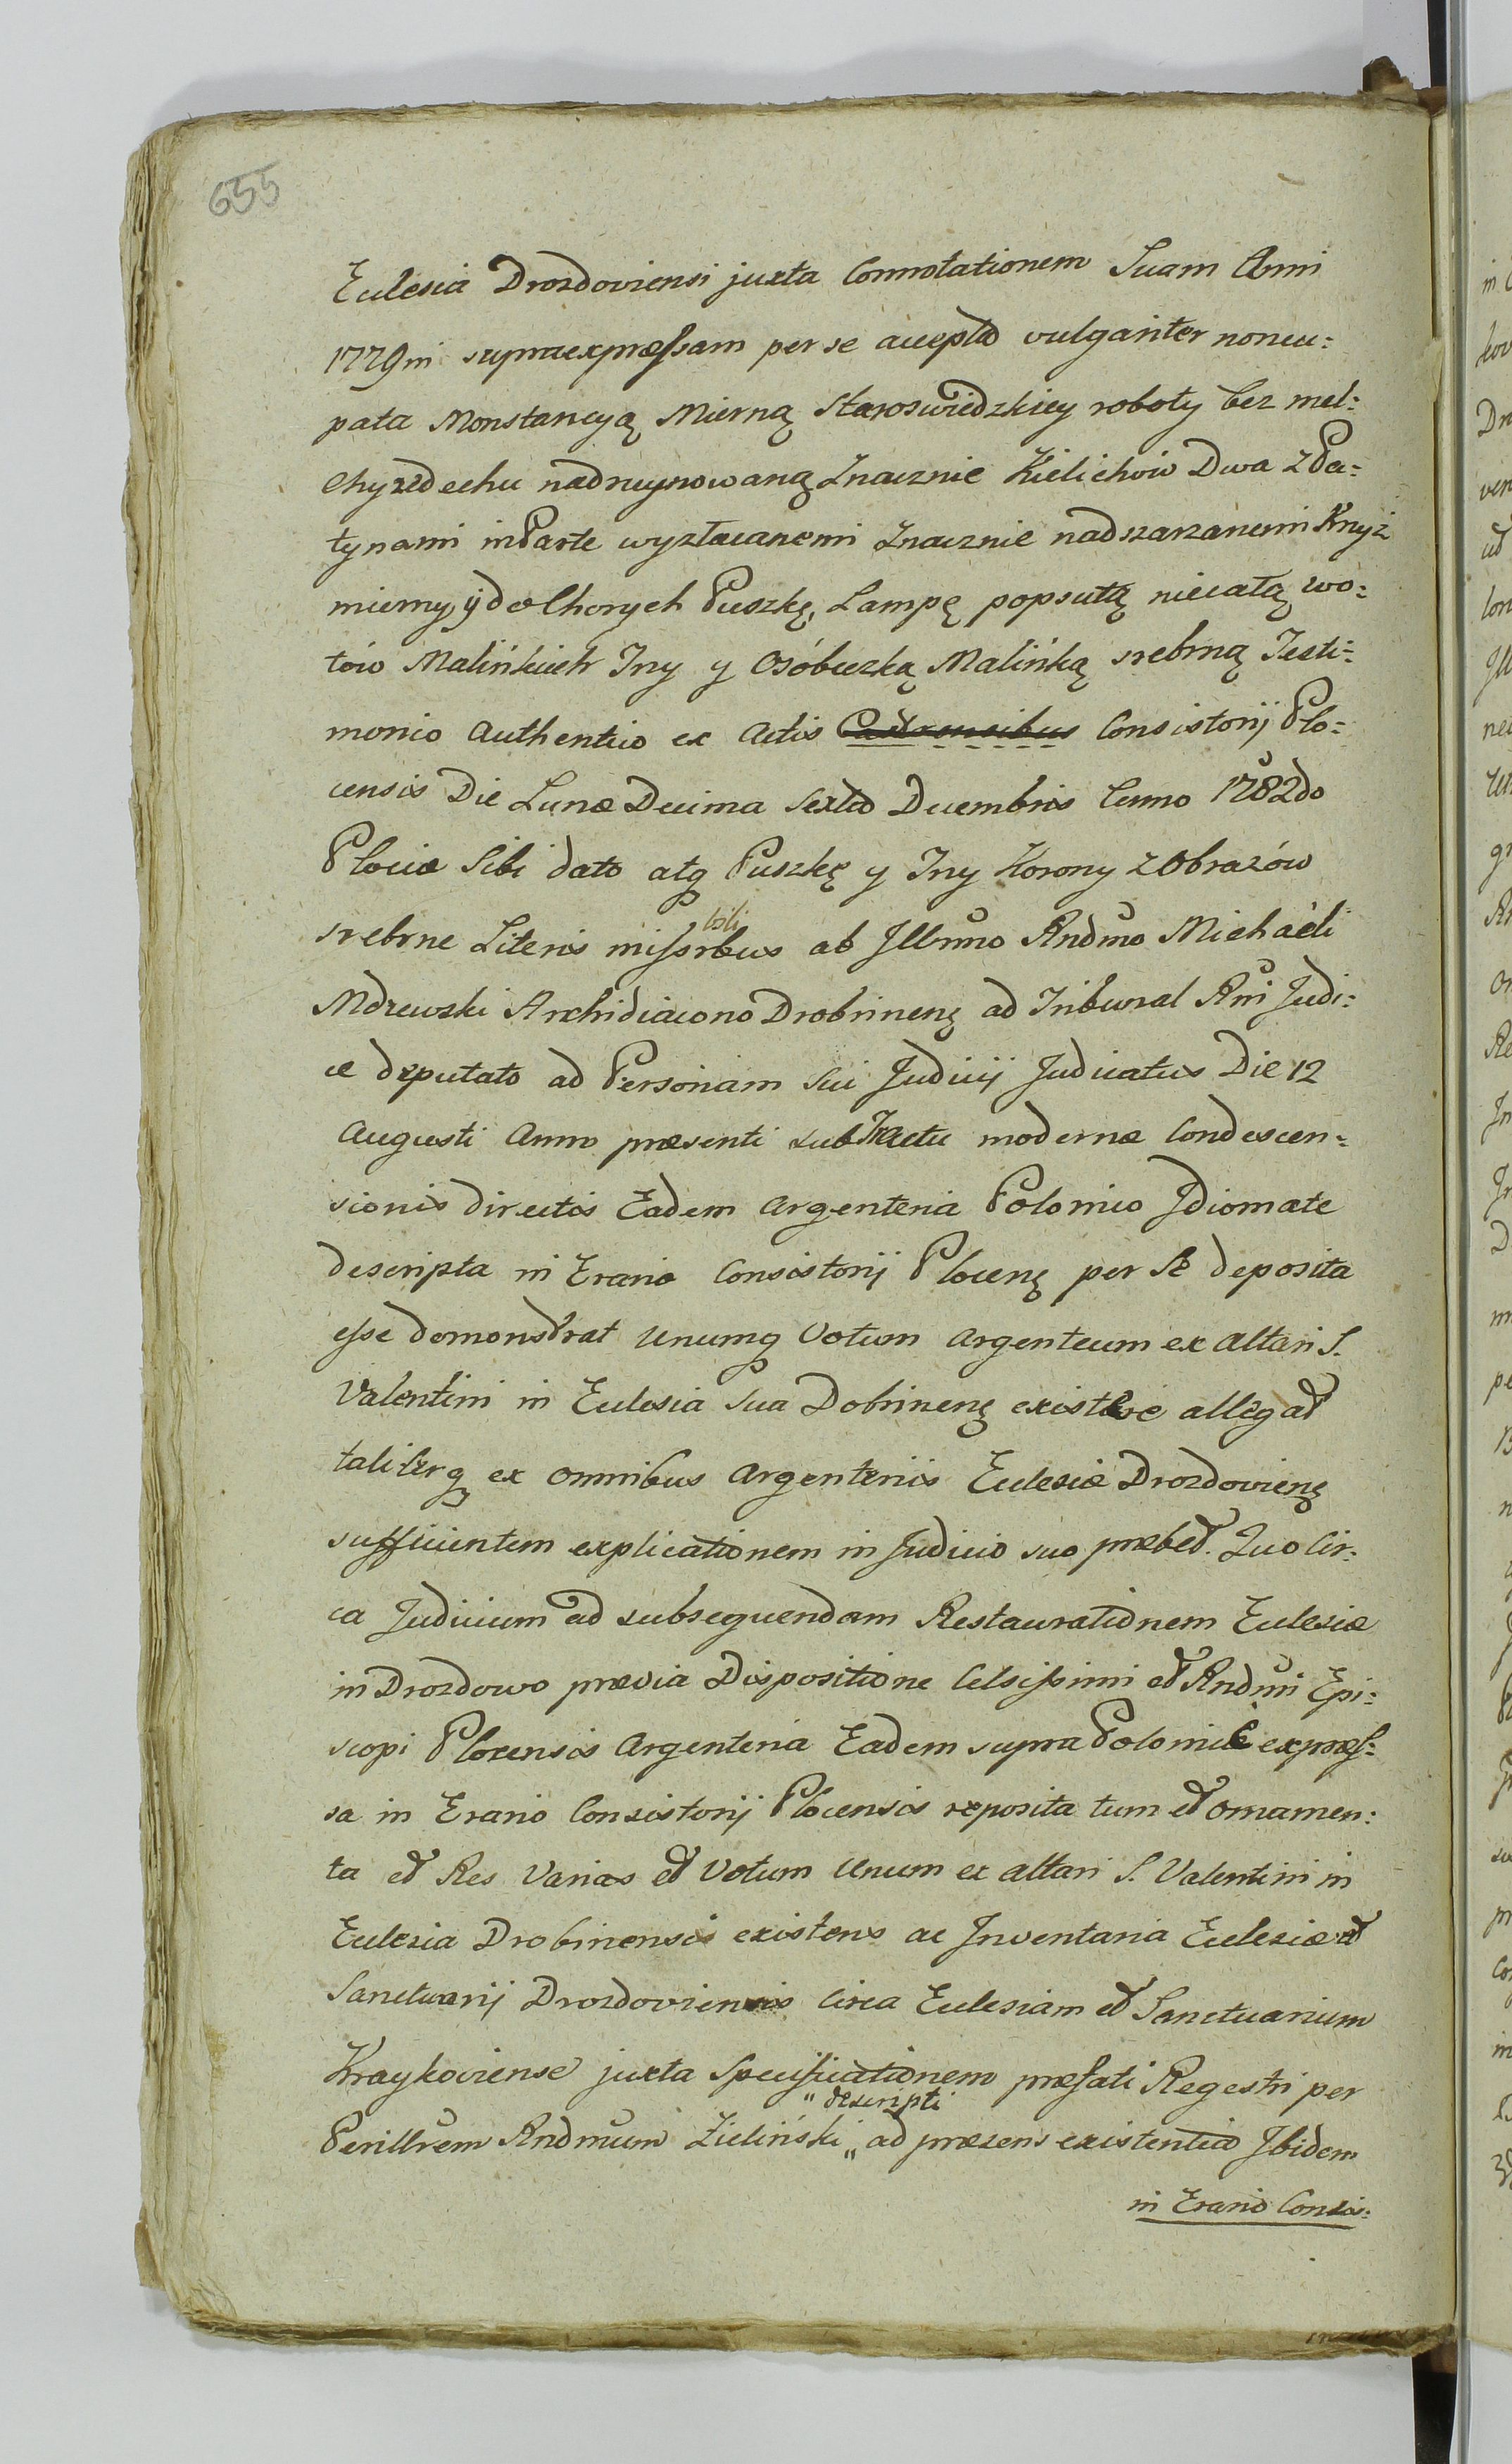 655
Eclesia Drozdoviensi juxta Connotationem Suam Anni
1779ni supraexpræssam per se accepta vulgariter noncu:
pata Monstancyą Mierną Staroswiedzkiey roboty bez mel:
chyzdechu nadruynowaną Znacznie Kielichów Dwa z Pa:
tynami in Parte wyzłacanemi Znacznie nadszarzanemi Krzyż
mierny, ÿ do Chorych Puszkę, Lampę popsutą niecałą wo:
tów Malińkich Trzy y Osóbeczką Malińką srebrną Testi:
monio Authentico ex Actis Castrensibus Consistorij Plo:
censis Die Lunæ Decima Sexta Decembris Anno 1782do
Plociæ Sibi dato atq Puszkę y Trzy Korony z Obrazów
srebrne Literis missorbus ab Illrmo Rndmo Michaeli
bili
Mdzewski Archidiacono Drobrinenę ad Tribunal Rni Judi:
ce deputato ad Personam Sui Judicij Judicatus Die 12
Augusti Anno præsenti sub Tractu modernæ Condescen:
sionis directis Eadem Argenteria Polonico Idiomate
descripta in Erario Consistorij Plocenę per Se deposita
esse demonstrat Unumq Votum Argenteum ex Altari S.
Valentini in Eclesia Sua Dobrinenę existere allegat
taliterq ex omnibus Argenteriis Eclesiæ Drozdovienę
sufficientem explicationem in Judicio suo præbet. Quo Cir:
ca Judicium ad subsequendam Restaurationem Eclesiæ
in Drozdowo prævia Dispositione Celsissimi et Rndmi Epi:
scopi Plocensis Argenteria Eadem supra Polonicè expræs:
sa in Erario Consistorij Plocensis reposita tum et Ornamen:
ta et Res Varias et Votum Unum ex altari S. Valentini in
Eclesia Drobinensis existens ac Inventaria Eclesiæ et
Sanctuarij Drozdoviensis Circa Eclesiam et Sanctuarium
Kraykoviense juxta Specificationem præfati Regestri per
" descripti
Perillrem Rndmum Zieliński " ad præsens existentia Ibidem
in Erario Consis: